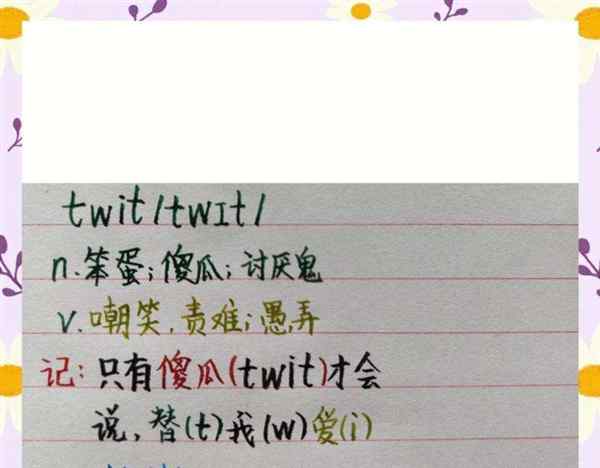 twit /twɪt/
n. 笨蛋；傻瓜；讨厌鬼
v. 嘲笑，责难；愚弄
记：只有傻瓜(twit)才会
说，替(t)我(w)爱(i)